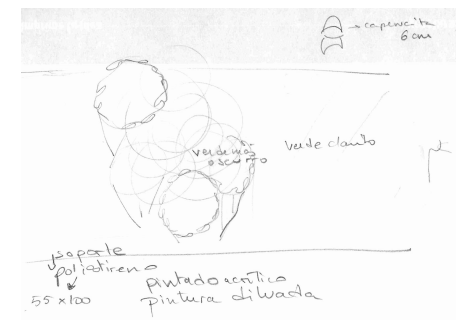 caperucita
6 cm
verde más
oscurito
verde clarito
soporte
poliestireno
55 x 100
pintado acrílico
pintura diluada